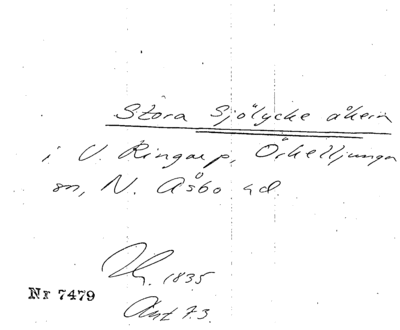 Stora Sjölycke åkern
i V. Ringarp, Örkelljunga
sn, N. Åsbo hd.
1835
Nr 7479
Akt 73.